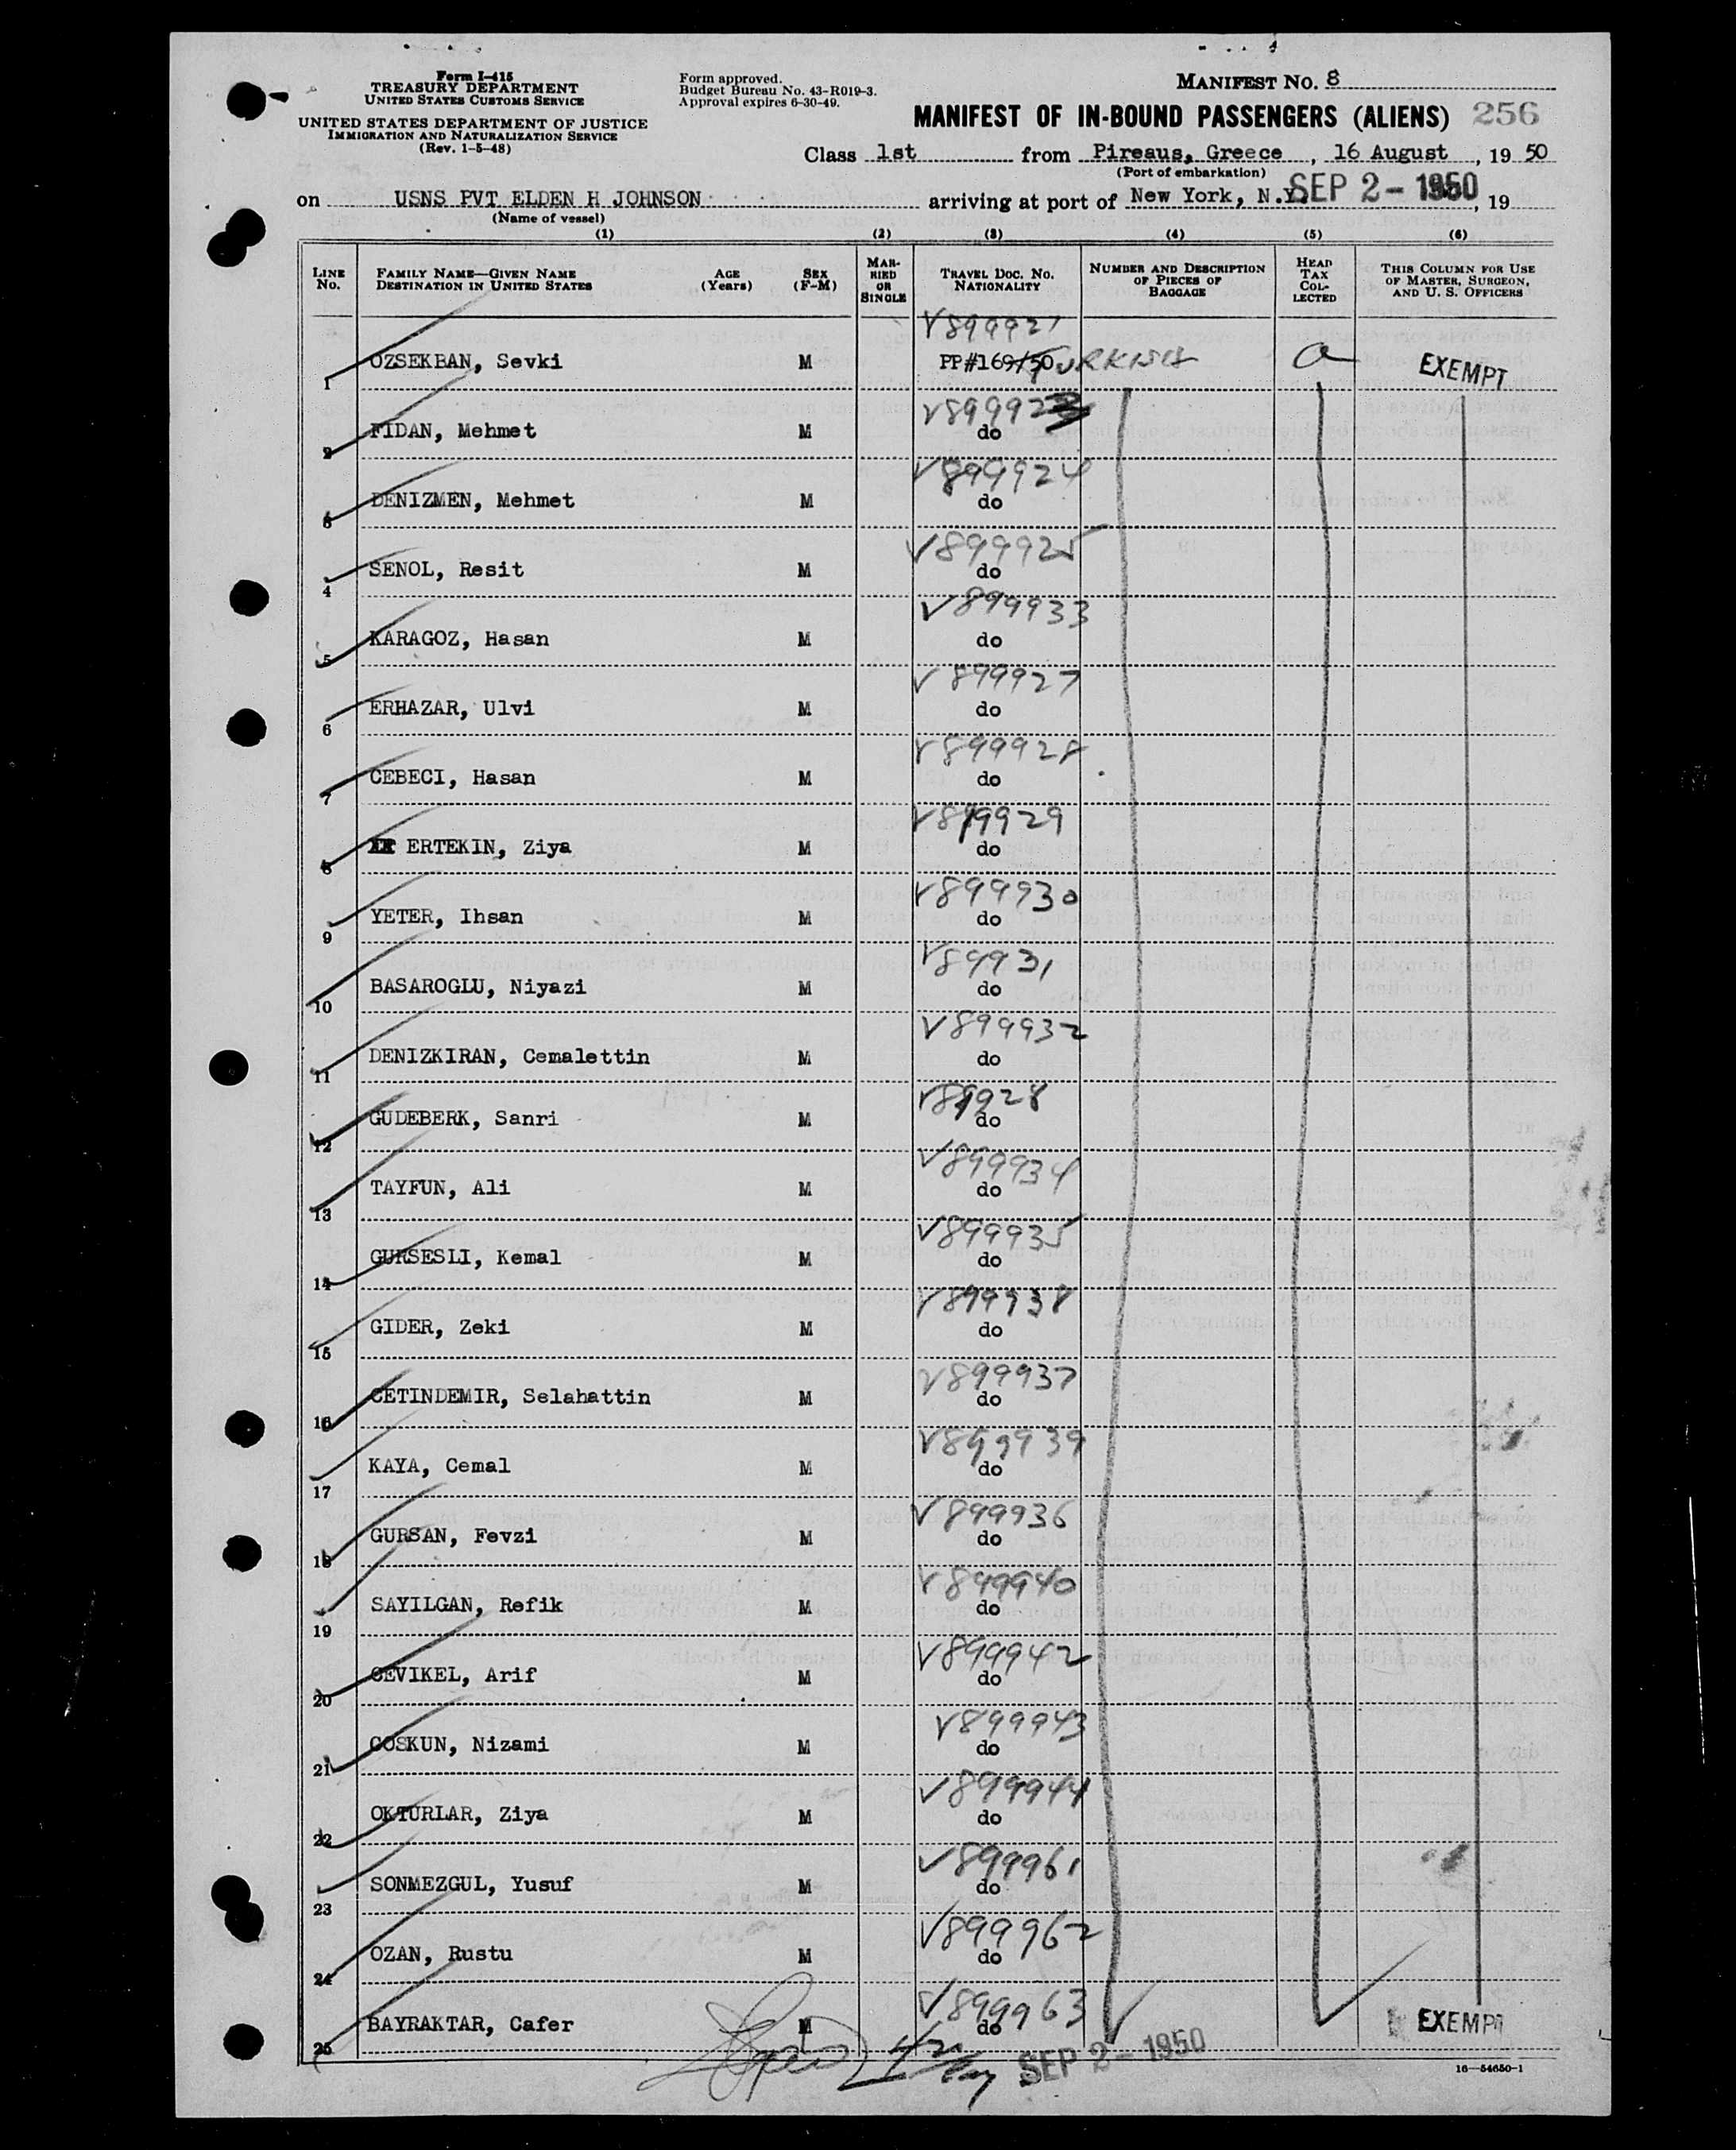 Form I-415
TREASURY DEPARTMENT
UNITED STATES CUSTOMS SERVICE
UNITED STATES DEPARTMENT OF JUSTICE
IMMIGRATION AND NATURALIZATION SERVICE
(Rev. 1-5-48)
Form approved.
Budget Bureau No. 43-R019-3.
Approval expires 6-30-49.
MANIFEST NO. 8
MANIFEST OF IN-BOUND PASSENGERS (ALIENS) 256
Class 1st from Pireaus, Greece, 16 August, 19 50
(Port of embarkation)
on USNS PVT ELDEN H JOHNSON arriving at port of New York, N.Y. SEP 2 - 1950, 19
(Name of vessel)
(1) (2) (3) (4) (5) (6)
LINE NO. FAMILY NAME—GIVEN NAME DESTINATION IN UNITED STATES AGE (Years) SEX (F-M) MARRIED OR SINGLE TRAVEL DOC. NO. NATIONALITY NUMBER AND DESCRIPTION OF PIECES OF BAGGAGE HEAD TAX COLLECTED THIS COLUMN FOR USE OF MASTER, SURGEON, AND U. S. OFFICERS
V899921
1 OZSEKBAN, Sevki M PP#169/50 TURKISH a EXEMPT
V89992
2 FIDAN, Mehmet M do
V899924
3 DENIZMEN, Mehmet M do
V899925
4 SENOL, Resit M do
V899933
5 KARAGOZ, Hasan M do
V899927
6 ERHAZAR, Ulvi M do
V899928
7 CEBECI, Hasan M do
V899929
8 ERTEKIN, Ziya M do
V899930
9 YETER, Ihsan M do
V89931
10 BASAROGLU, Niyazi M do
V899932
11 DENIZKIRAN, Cemalettin M do
V89928
12 GUDEBERK, Sanri M do
V899934
13 TAYFUN, Ali M do
V899935
14 GURSESLI, Kemal M do
V899938
15 GIDER, Zeki M do
V899937
16 CETINDEMIR, Selahattin M do
V899939
17 KAYA, Cemal M do
V899936
18 GURSAN, Fevzi M do
V899940
19 SAYILGAN, Refik M do
V899942
20 CEVIKEL, Arif M do
V899943
21 COSKUN, Nizami M do
V899944
22 OKTURLAR, Ziya M do
V899961
23 SONMEZGUL, Yusuf M do
V899962
24 OZAN, Rustu M do
V899963
25 BAYRAKTAR, Cafer M do EXEMPT
SEP 2 - 1950
16—54650-1